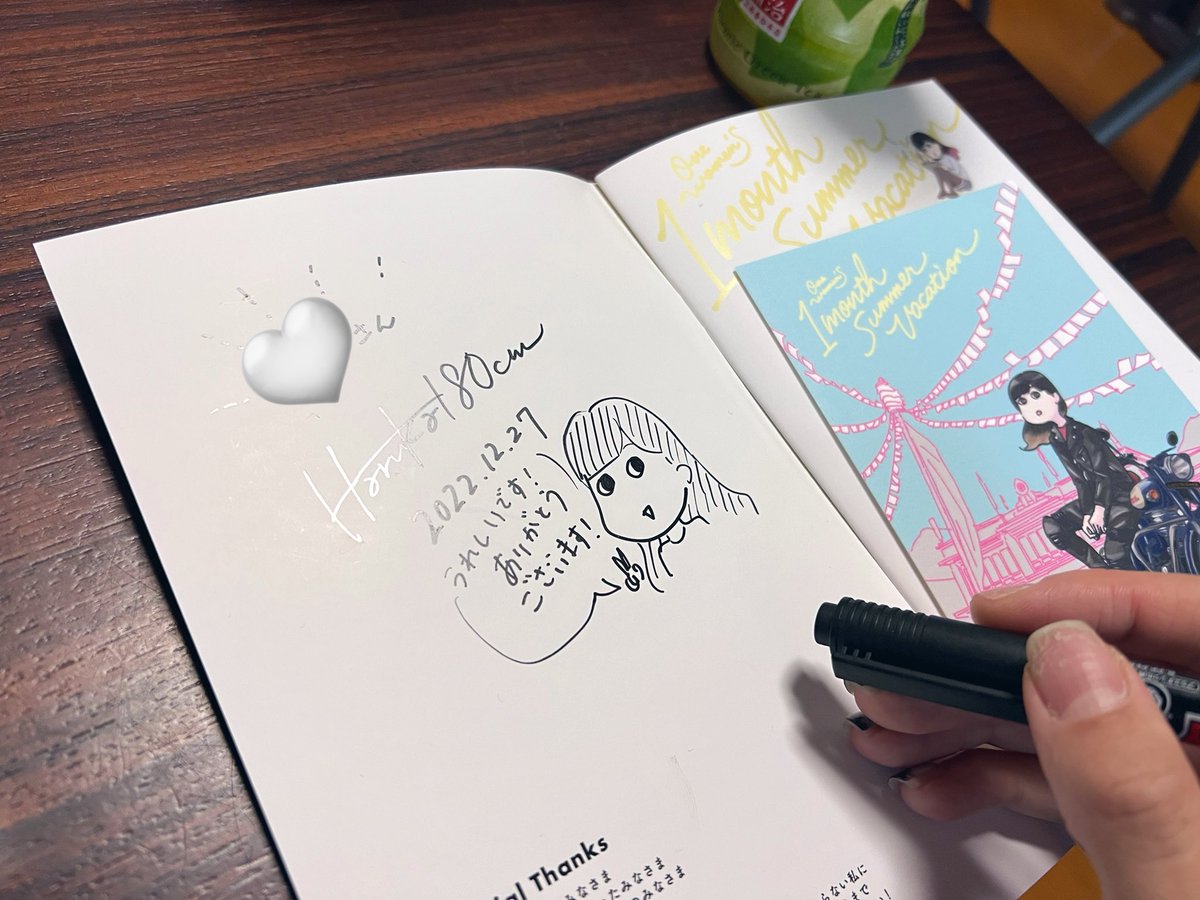 さん
Honka180cm
2022.12.27
うれしいです!
ありがとう
ございます!
One
women's
1month
Summer
Vacation
One
women's
1month
Summer
Vacation
Green Tea
Thanks
みなさま
ったみなさま
のみなさま
らない私に
まで